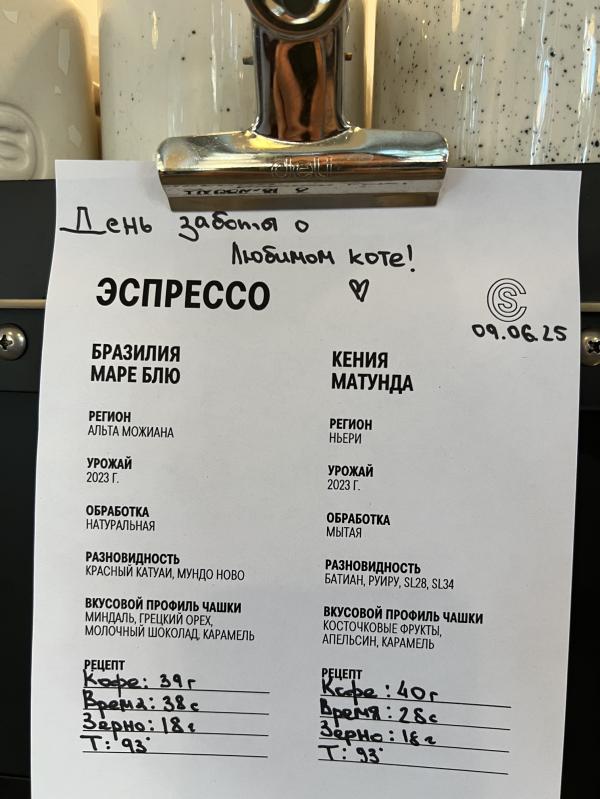 День заботы о
Любимом коте!
ЭСПРЕССО
09.06.25
БРАЗИЛИЯ
МАРЕ БЛЮ
РЕГИОН
АЛЬТА МОЖИАНА
УРОЖАЙ
2023 Г.
ОБРАБОТКА
НАТУРАЛЬНАЯ
РАЗНОВИДНОСТЬ
КРАСНЫЙ КАТУАИ, МУНДО НОВО
ВКУСОВОЙ ПРОФИЛЬ ЧАШКИ
МИНДАЛЬ, ГРЕЦКИЙ ОРЕХ,
МОЛОЧНЫЙ ШОКОЛАД, КАРАМЕЛЬ
РЕЦЕПТ
Кофе: 39г
Время: 38с
Зерно: 18г
Т: 93°
КЕНИЯ
МАТУНДА
РЕГИОН
НЬЕРИ
УРОЖАЙ
2023 Г.
ОБРАБОТКА
МЫТАЯ
РАЗНОВИДНОСТЬ
БАТИАН, РУИРУ, SL28, SL34
ВКУСОВОЙ ПРОФИЛЬ ЧАШКИ
КОСТОЧКОВЫЕ ФРУКТЫ,
АПЕЛЬСИН, КАРАМЕЛЬ
РЕЦЕПТ
Кофе: 40г
Время: 28с
Зерно: 18г
Т: 93°